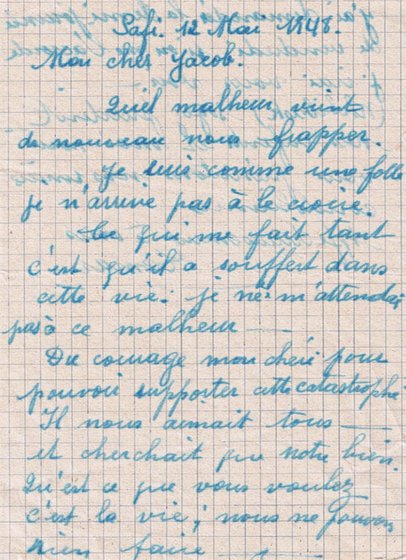 Safi. 12 Mai 1948.
Mon cher Jacob.
Quel malheur vient
de nouveau nous frapper.
Je suis comme une folle
je n'arrive pas à le croire.
Ce qui me fait tant
c'est qu'il a souffert dans
cette vie. je ne m'attendai
pas à ce malheur —
Du courage mon chéri pour
pouvoir supporter cette catastrophe
Il nous aimait tous —
et cherchait que notre bien.
Qu'est ce que vous voulez
c'est la vie; nous ne pouvons
rien faire —